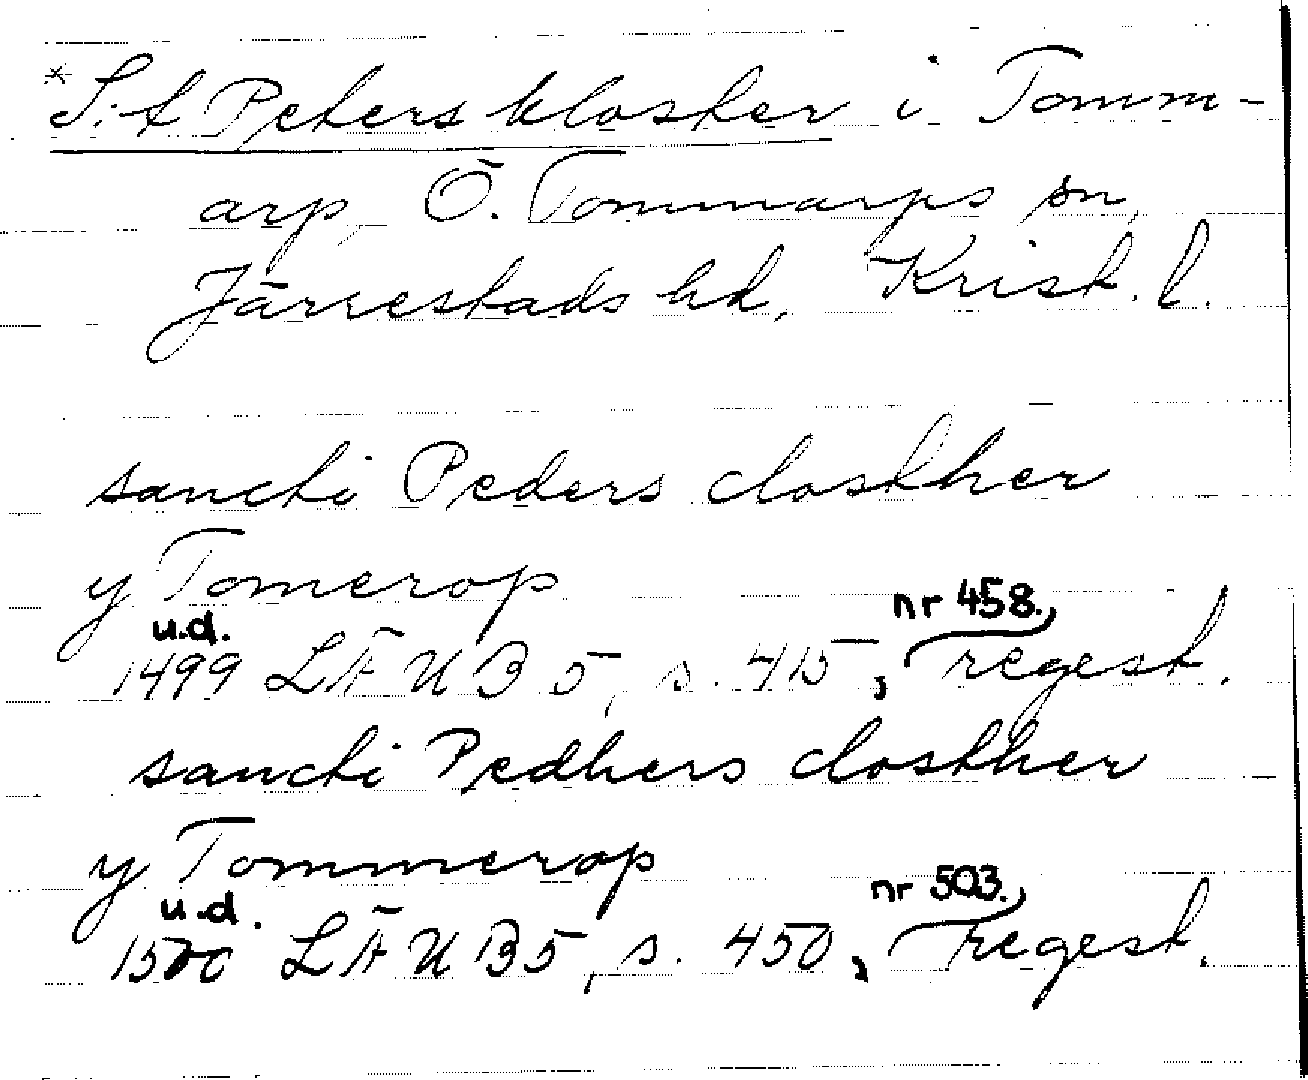 *S:t Peters kloster i Tomm-
arp, Ö. Tommarps sn,
Järrestads hd, Krist. l.
sancti Peders closther
y Tomerop
u.d. nr 458.,
1499 LÄUB 5, s. 415, regest.
sancti Pedhers closther
y Tommerop
u.d. nr 503.,
1500 LÄUB 5, s. 450, regest.